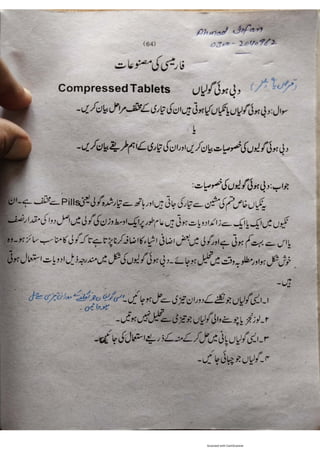 Ahmad
(64)
فارمیسی کی مصنوعات
دبی ہوئی گولیاں Compressed Tablets
سوال: دبی ہوئی گولیاں یا ٹکیاں کیا ہوتی ہیں ان کی تیاری کے مختلف مراحل بیان کریں۔
یا
دبی ہوئی گولیوں کی خصوصیات بیان کریں اور ان کی تیاری کے اہم طریقے بیان کریں۔
جواب: دبی ہوئی گولیوں کی خصوصیات:
یہ ٹکیاں خاص قسم کی مشین سے تیار کی جاتی ہیں اور ہاتھ سے تیار شدہ گولی یعنی Pills سے مختلف ہے۔ ان
ٹکیوں میں ایک یا ایک سے زائد ادویات ہوتی ہیں عام طور پر ایک اوسط وزن کی گولی میں اصل دوا کی مقدار نصف
یا اس سے بہت کم ہوتی ہے اور گولی میں بعض اضافی اشیاء کا اضافہ کرنا پڑتا ہے تاکہ گولی کا مناسب سائز ہو۔ وہ
خوش شکل ہو اور مطلوبہ وقت میں تحلیل ہو جائے۔ دبی ہوئی گولیوں کی شکل میں مندرجہ ذیل ادویات استعمال ہوتی
ہیں۔
۱۔ ایسی گولیاں جو نگلنے کے دوران تیزی سے حل ہو جائیں۔
۲۔ لوزنجز یا چوسنے والی گولیاں جو تیزی سے تحلیل نہیں ہوتیں۔
۳۔ ایسی گولیاں پانی میں حل کر کے منہ کے ذریعے استعمال کی جائیں۔
۴۔ گولیاں جو چبائی جائیں۔
Scanned with CamScanner